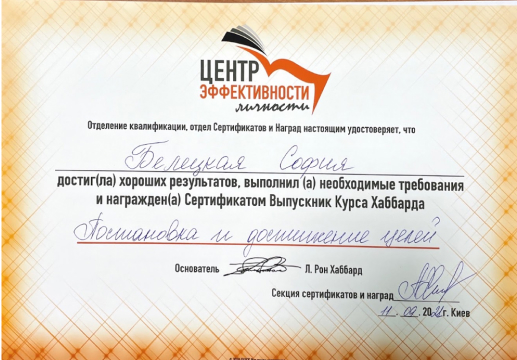 ЦЕНТР
ЭФФЕКТИВНОСТИ
личности
Отделение квалификации, отдел Сертификатов и Наград настоящим удостоверяет, что
Белецкая София
достиг(ла) хороших результатов, выполнил (а) необходимые требования
и награжден(а) Сертификатом Выпускник Курса Хаббарда
Постановка и достижение целей
Основатель Л. Рон Хаббард
Секция сертификатов и наград
г. Киев